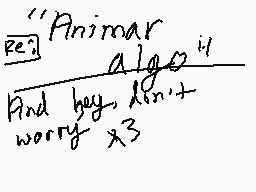 "Animar
Re: algo"
And hey, don't
worry x3